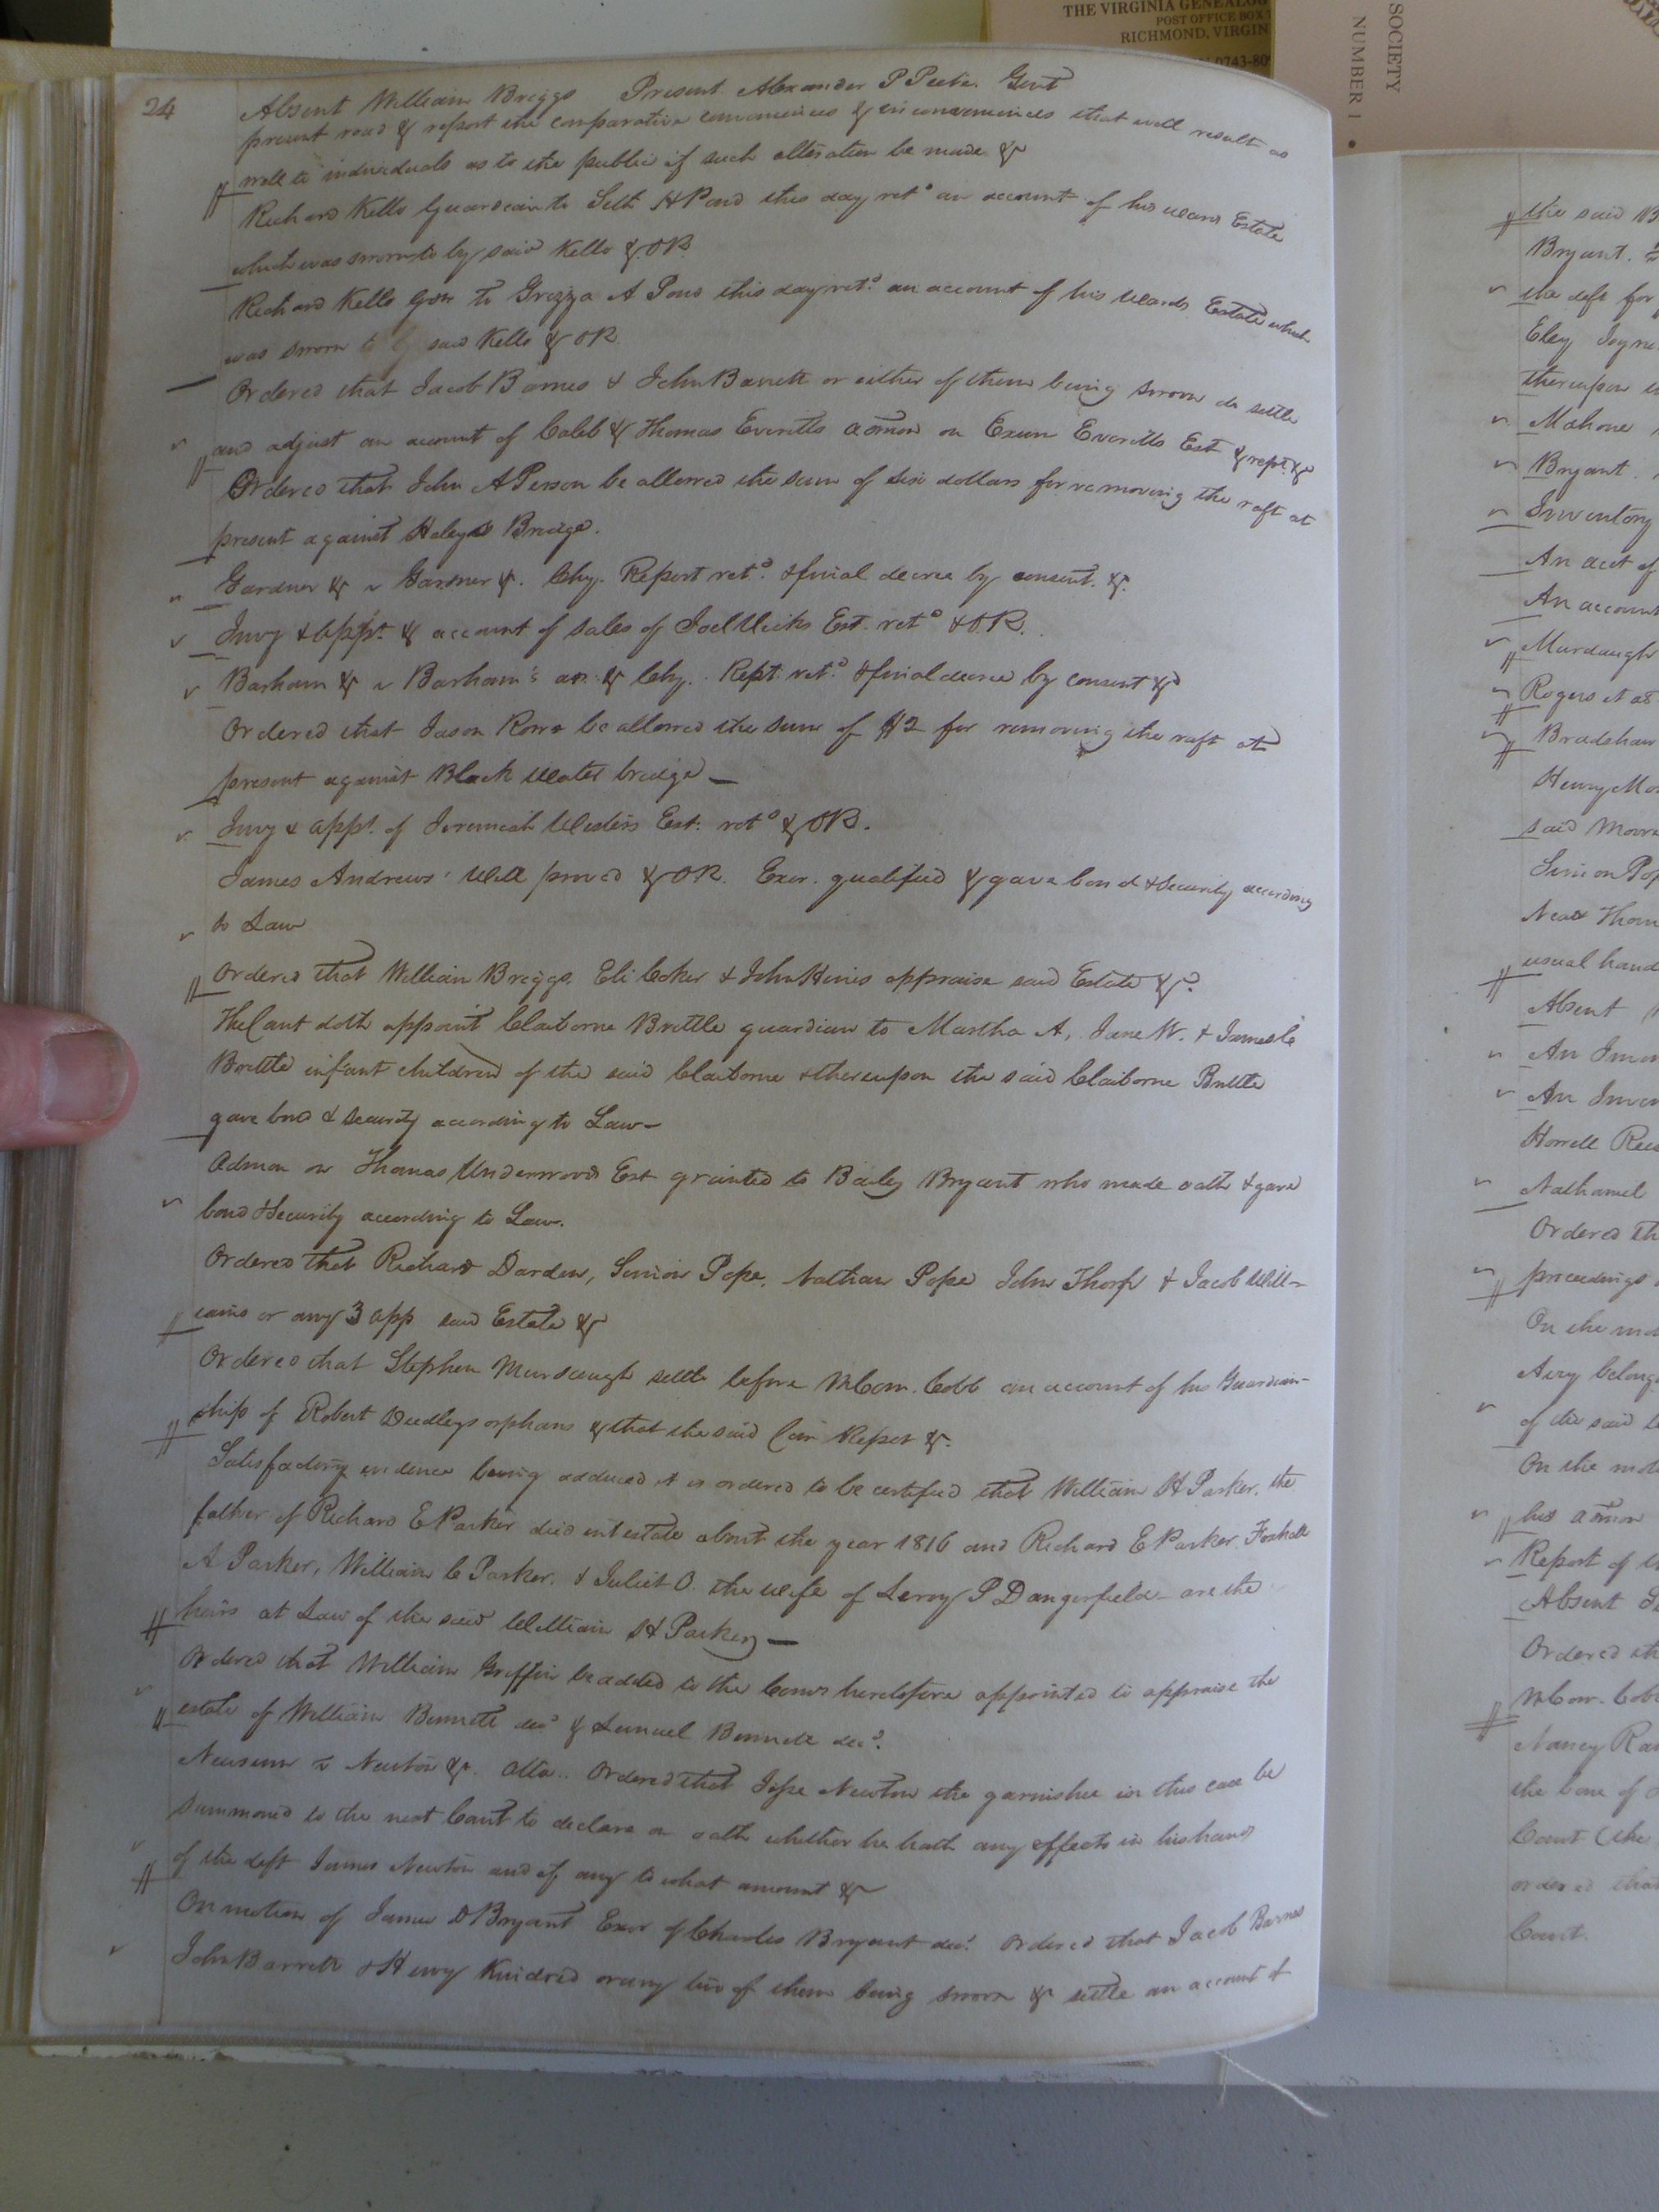 THE VIRGINIA GENEALOG
POST OFFICE BOX
RICHMOND, VIRGIN
0743-80
SOCIETY
NUMBER 1 •
24
Absent William Briggs Present Alexander P Peete. Gent
present road & report the comparative conveniences & inconveniences that will result as
well to individuals as to the public if such alteration be made &c
Richard Kello Guardian to Seth H Pond this day retd an account of his wards Estate
which was sworn to by said Kello & OR
Richard Kello Gdn to Grizza A Pond this day retd. an account of his wards Estate which
was sworn to by said Kello & OR.
Ordered that Jacob Barnes & John Barrett or either of them being sworn do settle
and adjust an account of Caleb & Thomas Everitts admon on Exum Everitts Est & rept. &c
Ordered that John A Person be allowed the sum of six dollars for removing the raft at
present against Haleys Bridge.
Gardner &c v Gardner &c. Chy. Report retd. & final decree by consent. &c.
Invy & appt. & account of sales of Joel Vicks Est. retd & O.R.
Barham &c v Barham's ar. &c Chy. Rept. retd. & final decree by consent &c
Ordered that Jason Rowe be allowed the sum of $2 for removing the raft at
present against Black Water bridge —
Invy & appt. of Jeremiah Westers Est: retd & OR.
James Andrews' Will proved & OR. Exor. qualified & gave bond & Security according
to Law
Ordered that William Briggs, Eli Coker & John Hines appraise said Estate &c.
The Court doth appoint Claiborne Brittle guardian to Martha A, Jane W. & James C
Brittle infant children of the said Claiborne & thereupon the said Claiborne Brittle
gave bond & security according to Law—
Admon on Thomas Underwoods Est granted to Baily Bryant who made oath & gave
bond & Security according to Law.
Ordered that Richard Darden, Simon Pope, Nathan Pope John Thorp & Jacob Will-
iams or any 3 app said Estate &c
Ordered that Stephen Murdaugh settle before M Com. Cobb an account of his Guardian-
ship of Robert Deedleys orphans & that the said Com Report &c.
Satisfactory evidence being adduced it is ordered to be certified that William H Parker, the
father of Richard E Parker died intestate about the year 1816 and Richard E Parker. Foxhall
A Parker, William C Parker, & Juliet O. the wife of Leroy P Dangerfield are the
heirs at Law of the said William H Parker —
Ordered that William Griffin be added to the Comrs heretofore appointed to appraise the
estate of William Bennett decd & Lemuel Bennett decd.
Newsum v Newton &c. atta.. Ordered that Jope Newton the garnishee in this case be
summoned to the next Court to declare on oath whether he hath any effects in his hands
of the deft James Newton and if any to what amount &c
On motion of James D Bryant Exor of Charles Bryant decd. Ordered that Jacob Barnes
John Barrett & Henry Kindred or any two of them being sworn &c settle an account of
the said B
Bryant.
the deft for
Eley Joyne
thereupon
Mahone
Bryant.
Inventory
An acct of
An account
Murdaugh
Rogers et als
Bradshaw
Henry Mo
said Moore
Simon Pop
Neal Thom
usual hand
Absent
An Inven
An Inven
Howell
Nathaniel
Ordered th
proceedings
On the mot
Avry belong
of the said
On the moti
his admon
Report of th
Absent
Ordered th
M Com. Cobb
Nancy Ra
the bone of
Court (the
ordered that
Court.